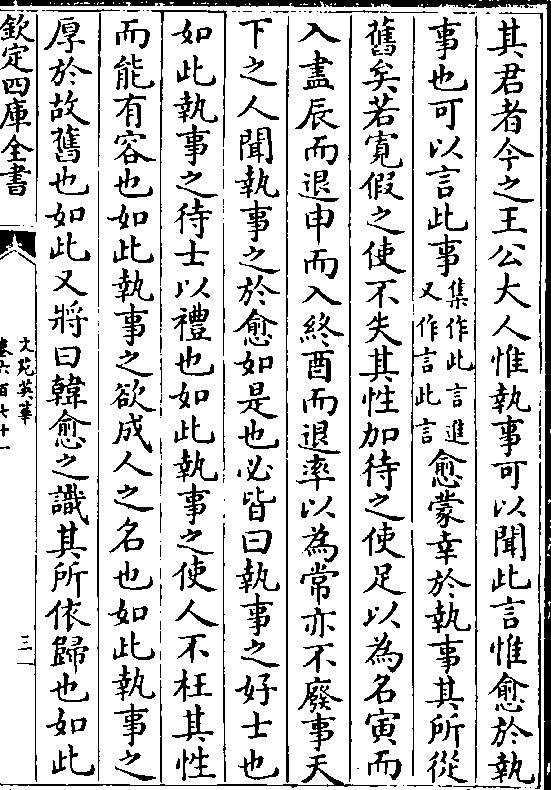 其君者今之王公大人惟執事可以聞此言惟愈於執
事也可以言此事集作此言進又作言此言愈蒙幸於執事其所從
舊矣若寛假之使不失其性加待之使足以為名寅而
入盡辰而退申而入終酉而退率以為常亦不廢事天
下之人聞執事之於愈如是也必皆曰執事之好士也
如此執事之待士以禮也如此執事之使人不枉其性
而能有容也如此執事之欲成人之名也如此執事之
厚於故舊也如此又將曰韓愈之識其所依歸也如此
欽定四庫全書
文苑英華
卷六百七十一
三